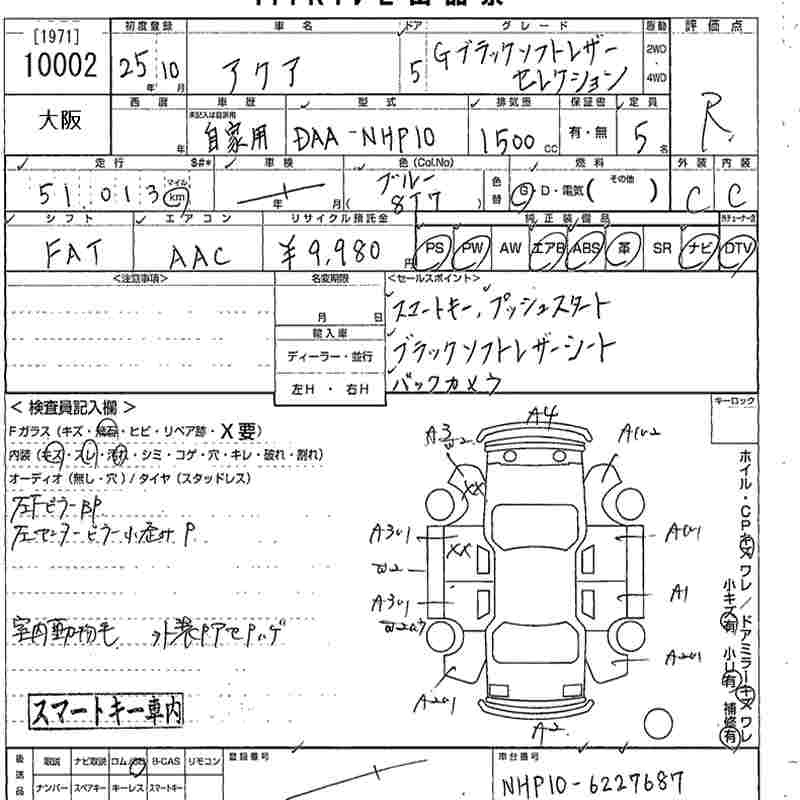 [1971]
10002
初度登録 車名 ドア グレード 原動 評価点
25年10月 アクア 5 Gブラックソフトレザーセレクション 2WD・4WD R
大阪
西暦 車歴 型式 排気量 保証書 定員
年 未記入は自家用 自家用 DAA-NHP10 1500cc 有・無 5名
走行 $#* 車検 色(Col.No) 燃料 外装 内装
51,013 マイル km 年 月 ブルー 8T7 色替 G・D・電気( その他 ) C C
シフト エアコン リサイクル預託金 純正装備品
FAT AAC ¥9,980円 PS PW AW エアB ABS 革 SR ナビ DTV
<注意事項> 名変期限 <セールスポイント>
月 日 スマートキー、プッシュスタート
輸入車
ディーラー・並行 ブラックソフトレザーシート
左H・右H バックカメラ
<検査員記入欄> キーロック
Fガラス(キズ・飛石・ヒビ・リペア跡・X要)
内装(キズ・スレ・汚れ・シミ・コゲ・穴・キレ・破れ・割れ)
オーディオ(無し・穴)/タイヤ(スタッドレス)
左Fピラー BP
左センターピラー小歪み P
室内動物毛 外装PアセPハゲ
スマートキー車内
A4
A3 W2
XX
A1U2
A3U1
XX
W2
A1U1
A3U1
W2U3
A1
A2U1
A2U1
A2
ホイル・CPキズ ワレ/ドアミラーキズ ワレ
小キズ有 小U有 補修有
後送品 取説 ナビ取説 ロム/SD B-CAS リモコン 登録番号 車台番号
ナンバー スペアキー キーレス スマートキー NHP10-6227687